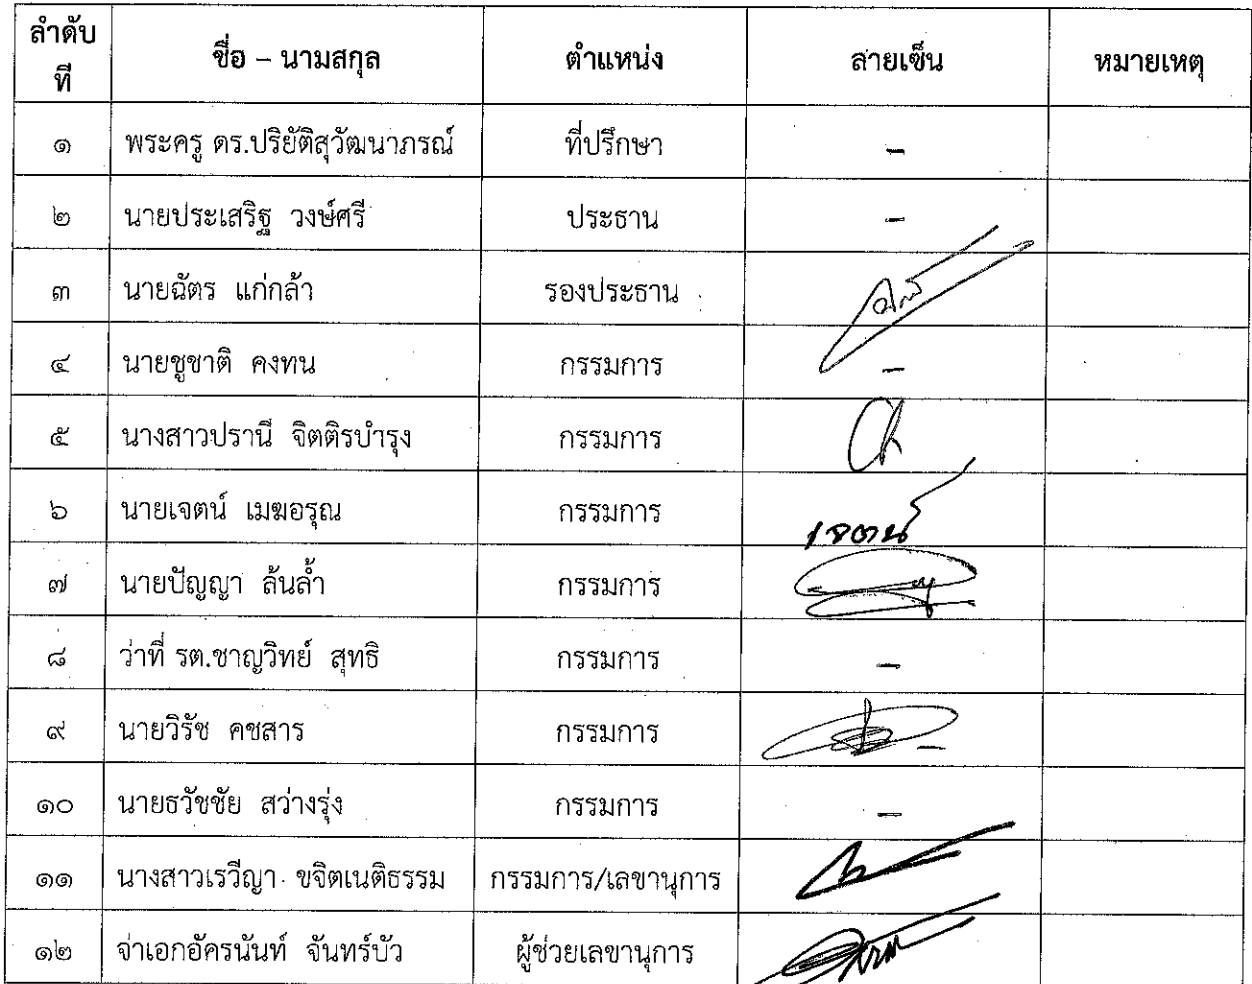 ลำดับที่ ชื่อ – นามสกุล ตำแหน่ง ลายเซ็น หมายเหตุ
๑ พระครู ดร.ปริยัติสุวัฒนาภรณ์ ที่ปรึกษา -
๒ นายประเสริฐ วงษ์ศรี ประธาน -
๓ นายฉัตร แก่กล้า รองประธาน
๔ นายชูชาติ คงทน กรรมการ -
๕ นางสาวปรานี จิตติรบำรุง กรรมการ
๖ นายเจตน์ เมฆอรุณ กรรมการ เจตน์
๗ นายปัญญา ล้นล้ำ กรรมการ
๘ ว่าที่ รต.ชาญวิทย์ สุทธิ กรรมการ -
๙ นายวิรัช คชสาร กรรมการ -
๑๐ นายธวัชชัย สว่างรุ่ง กรรมการ -
๑๑ นางสาวเรวีญา ขจิตเนติธรรม กรรมการ/เลขานุการ
๑๒ จ่าเอกอัครนันท์ จันทร์บัว ผู้ช่วยเลขานุการ